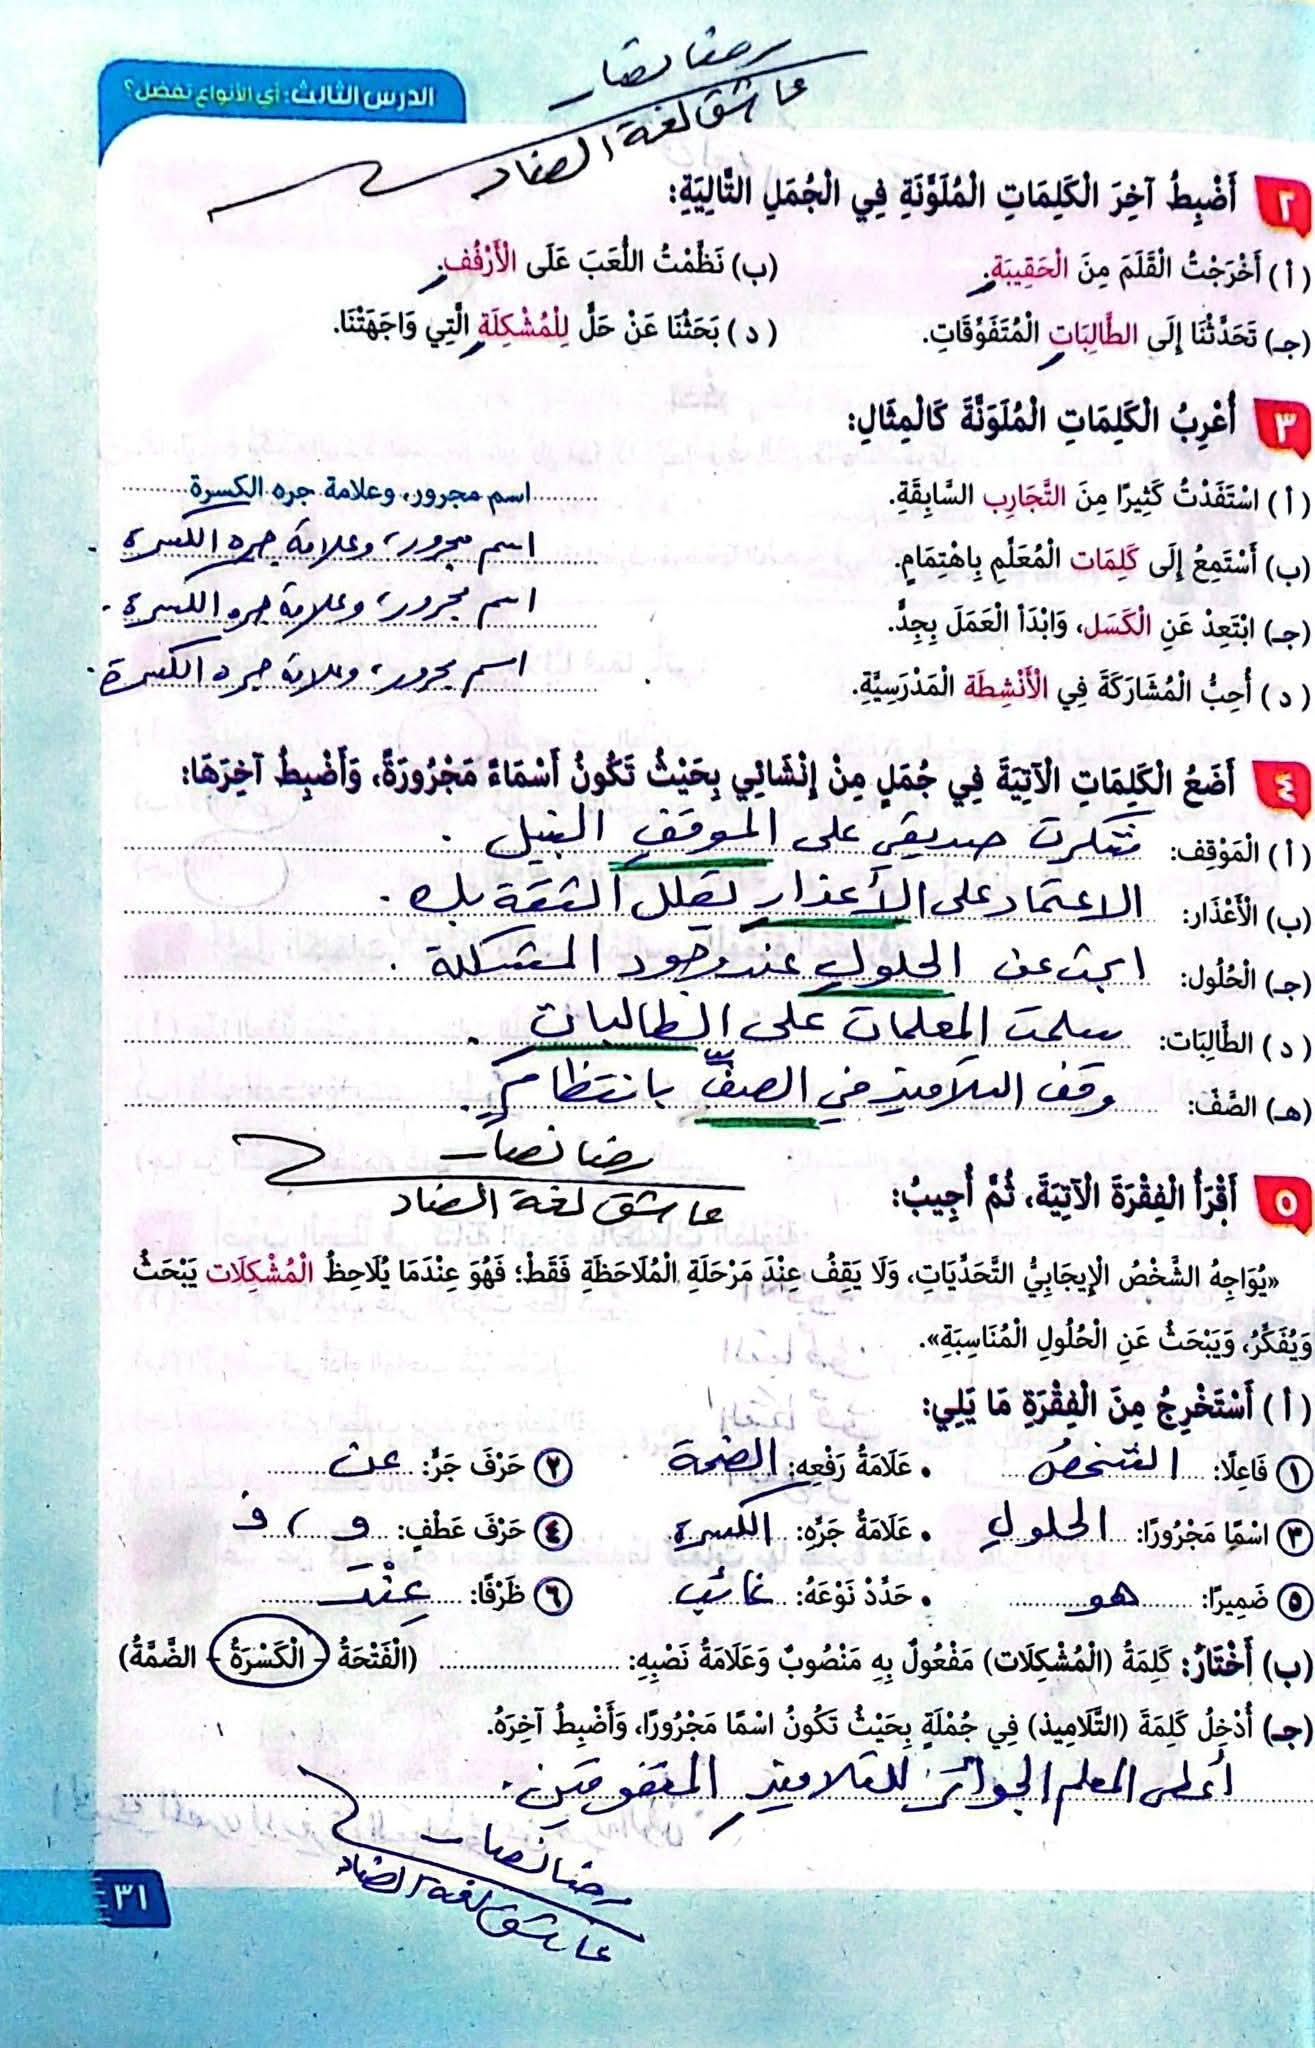 رضا نصار
عاشق لغة الضاد
الدرس الثالث: أي الأنواع تفضل؟
٢ أَضْبِطُ آخِرَ الْكَلِمَاتِ الْمُلَوَّنَةِ فِي الْجُمَلِ التَّالِيَةِ:
(أ) أَخْرَجْتُ الْقَلَمَ مِنَ الْحَقِيبَةِ. (ب) نَظَّمْتُ اللُّعَبَ عَلَى الْأَرْفُفِ.
(جـ) تَحَدَّثْنَا إِلَى الطَّالِبَاتِ الْمُتَفَوِّقَاتِ. (د) بَحَثْنَا عَنْ حَلٍّ لِلْمُشْكِلَةِ الَّتِي وَاجَهَتْنَا.
٣ أُعْرِبُ الْكَلِمَاتِ الْمُلَوَّنَةَ كَالْمِثَالِ:
(أ) اسْتَفَدْتُ كَثِيرًا مِنَ التَّجَارِب السَّابِقَةِ. اسم مجرور، وعلامة جره الكسرة
(ب) أَسْتَمِعُ إِلَى كَلِمَات الْمُعَلِّمِ بِاهْتِمَامٍ. اسم مجرور، وعلامة جره الكسرة.
(جـ) ابْتَعِدْ عَنِ الْكَسَل، وَابْدَأْ الْعَمَلَ بِجِدٍّ. اسم مجرور، وعلامة جره الكسرة.
(د) أُحِبُّ الْمُشَارَكَةَ فِي الْأَنْشِطَة الْمَدْرَسِيَّةِ. اسم مجرور، وعلامة جره الكسرة.
٤ أَضَعُ الْكَلِمَاتِ الْآتِيَةَ فِي جُمَلٍ مِنْ إِنْشَائِي بِحَيْثُ تَكُونُ أَسْمَاءً مَجْرُورَةً، وَأَضْبِطُ آخِرَهَا:
(أ) الْمَوْقِف: شكرت صديقي على الموقفِ النبيل.
(ب) الْأَعْذَار: الاعتماد على الأعذارِ تقلل الثقة بك.
(جـ) الْحُلُول: ابحث عن الحلولِ عند وجود المشكلة.
(د) الطَّالِبَات: سلمت المعلمات على الطالباتِ.
(هـ) الصَّفّ: وقف التلاميذ في الصفِّ بانتظامٍ.
رضا نصار
عاشق لغة الضاد
٥ أَقْرَأُ الْفِقْرَةَ الْآتِيَةَ، ثُمَّ أُجِيبُ:
«يُوَاجِهُ الشَّخْصُ الْإِيجَابِيُّ التَّحَدِّيَاتِ، وَلَا يَقِفُ عِنْدَ مَرْحَلَةِ الْمُلَاحَظَةِ فَقَطْ؛ فَهُوَ عِنْدَمَا يُلَاحِظُ الْمُشْكِلَات يَبْحَثُ
وَيُفَكِّرُ، وَيَبْحَثُ عَنِ الْحُلُولِ الْمُنَاسِبَةِ».
(أ) أَسْتَخْرِجُ مِنَ الْفِقْرَةِ مَا يَلِي:
١ فَاعِلًا: الشخصُ • عَلَامَةُ رَفْعِهِ: الضمة ٢ حَرْفَ جَرٍّ: عن
٣ اسْمًا مَجْرُورًا: الحلولِ • عَلَامَةُ جَرِّهِ: الكسرة ٤ حَرْفَ عَطْفٍ: و، ف
٥ ضَمِيرًا: هو • حَدِّدْ نَوْعَهُ: غائب ٦ ظَرْفًا: عِنْدَ
(ب) أَخْتَارُ: كَلِمَةُ (الْمُشْكِلَات) مَفْعُولٌ بِهِ مَنْصُوبٌ وَعَلَامَةُ نَصْبِهِ: (الْفَتْحَةُ - الْكَسْرَةُ - الضَّمَّةُ)
(جـ) أُدْخِلُ كَلِمَةَ (التَّلَامِيذ) فِي جُمْلَةٍ بِحَيْثُ تَكُونُ اسْمًا مَجْرُورًا، وَأَضْبِطُ آخِرَهُ.
أعطى المعلم الجوائز للتلاميذِ المتفوقين.
رضا نصار
عاشق لغة الضاد
٣١